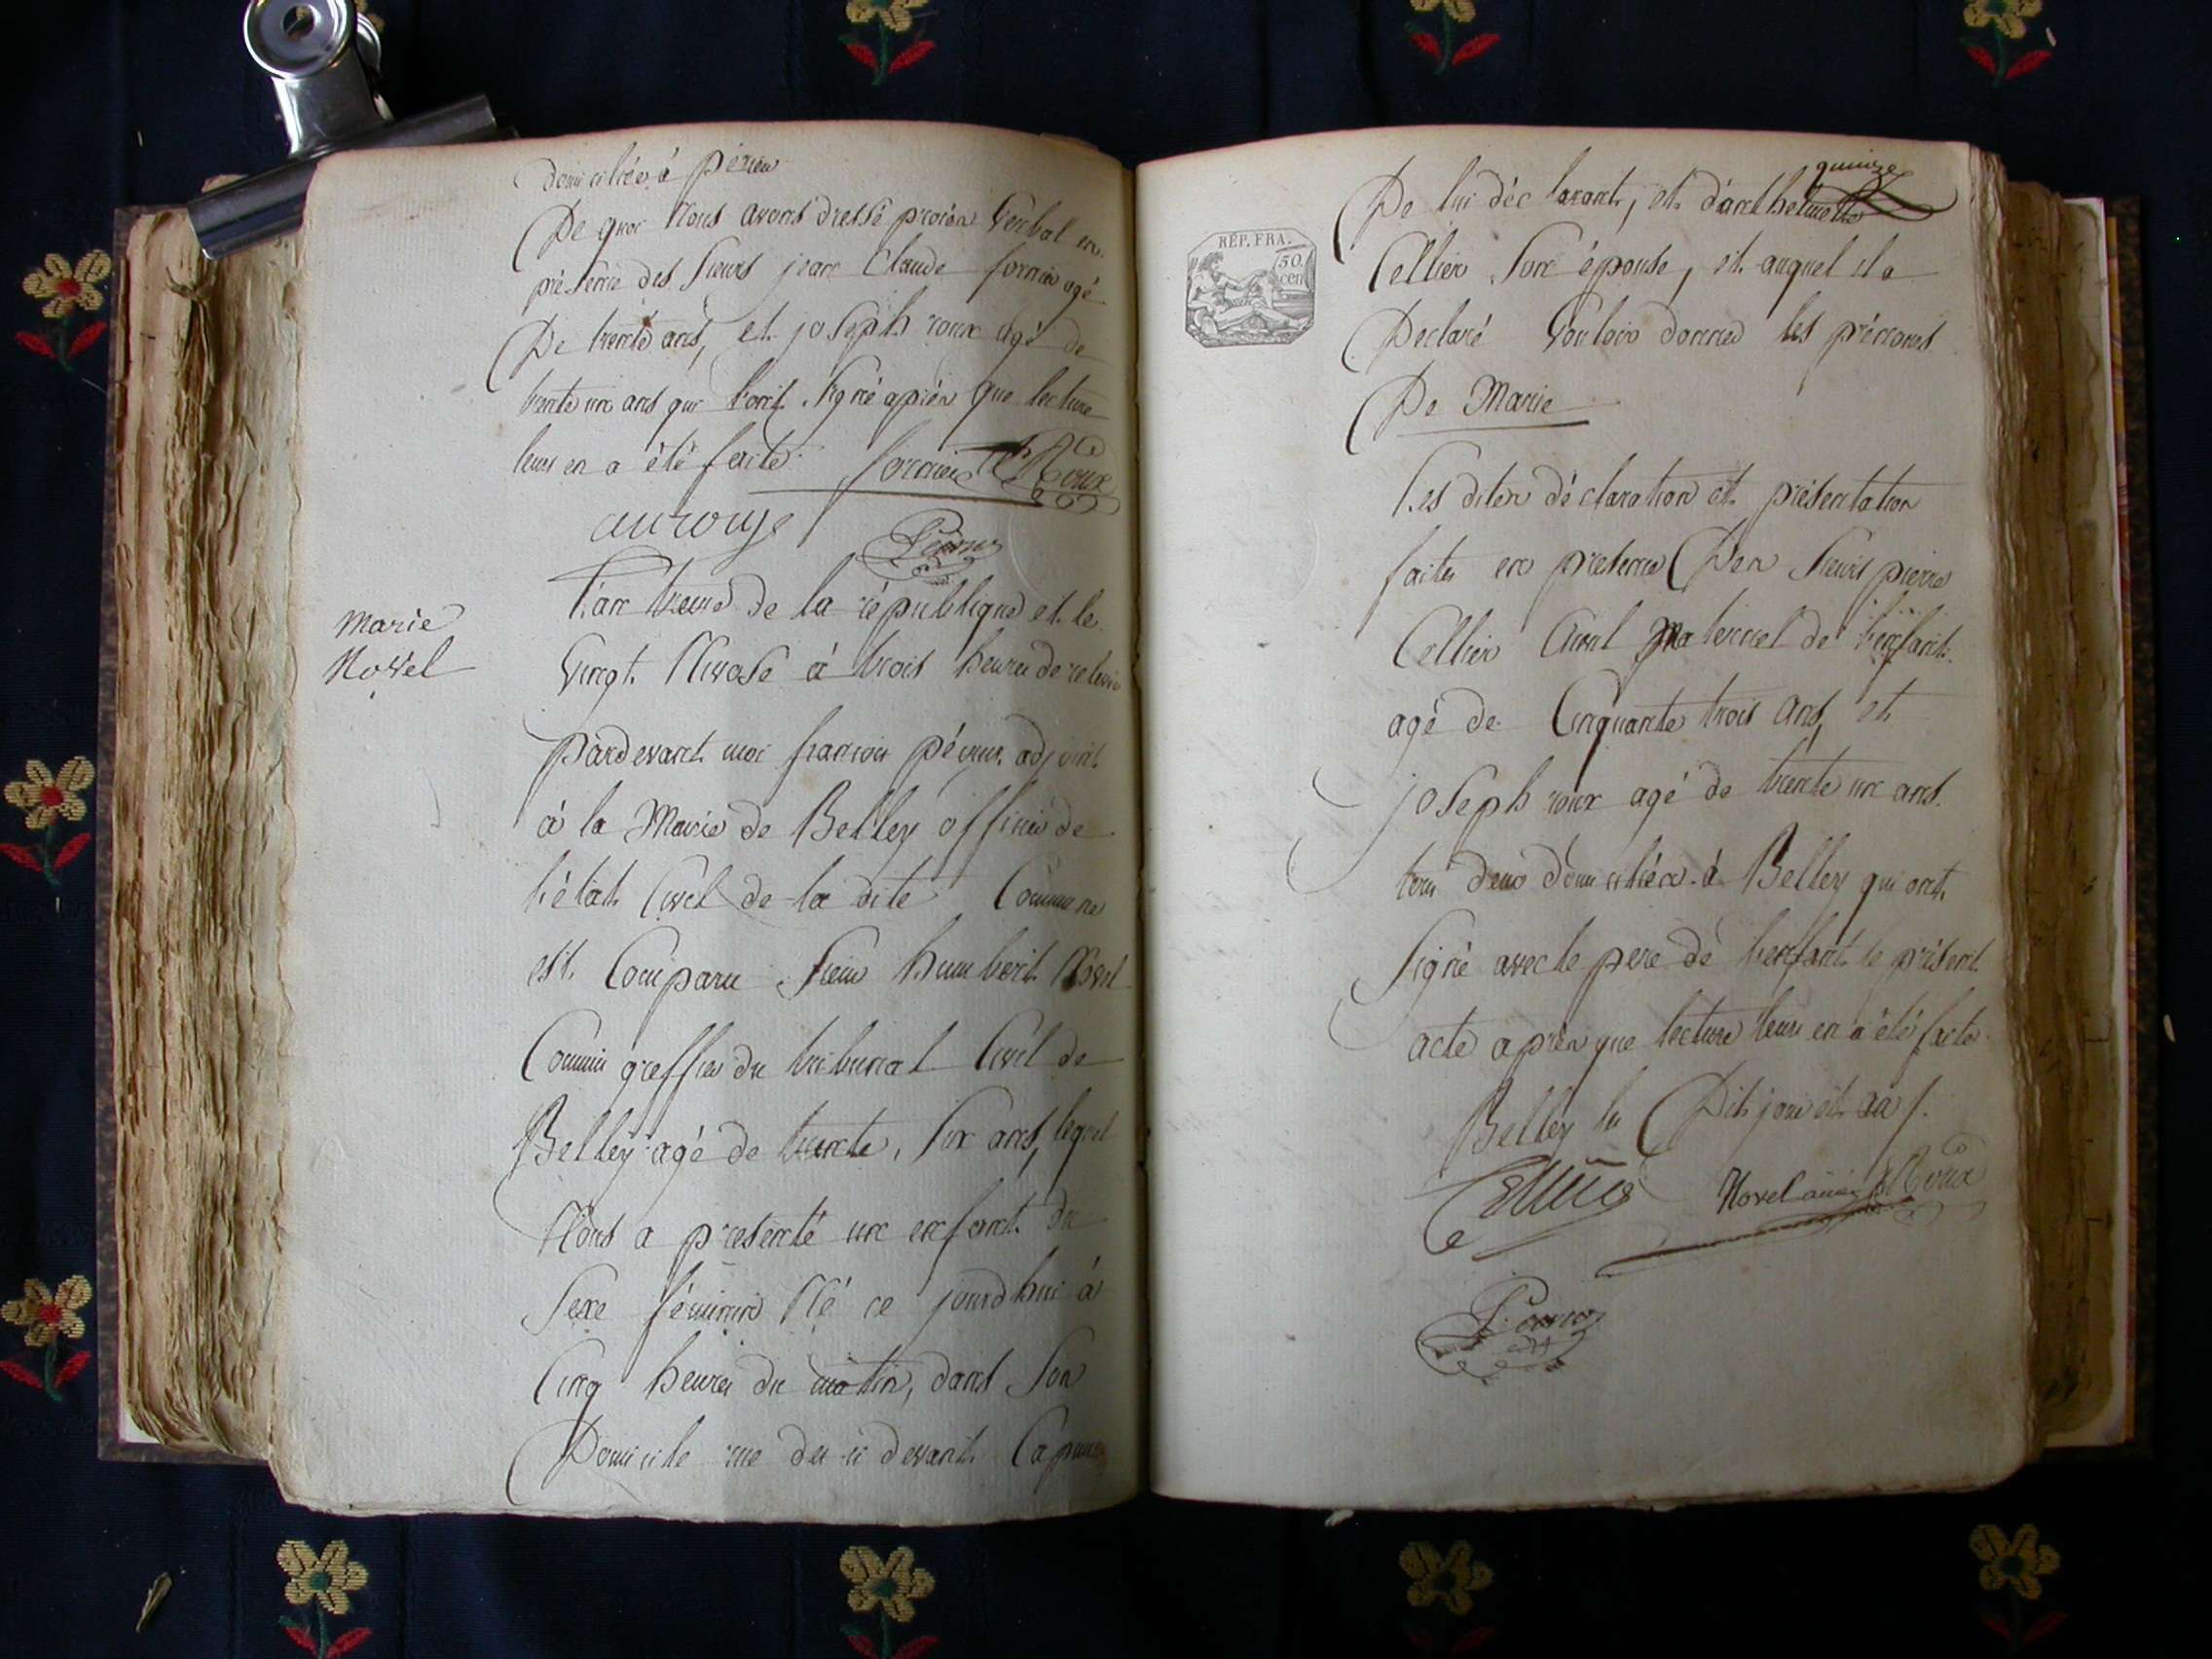 domiciliés à périeu
De quoi Nous avons dressé procès Verbal en
présence des Sieurs jean Claude fornier agé
De trente ans, et joseph roux agé de
trente un ans qui l'ont Signé après que lecture
leur en a été faite. fornier Roux
aurouge
L'an treize de la république et le
Vingt Nivose à trois heures de relevée
Pardevant moi francois adjoint
à la Mairie de Belley officier de
l'état Civil de la dite Commune
est Comparu Sieur humbert Novel
Commis greffier du tribunal Civil de
Belley agé de trente Six ans, lequel
Nous a presenté un enfant du
Sexe féminin Né ce jourd'hui à
Cinq heures du matin, dans Son
Domicile rue des ci devant Capucins
Marie
Novel
RÉP. FRA.
50.
cen
quinze
De lui déclarant, et d'anthelmette
Cellier Son épouse, et auquel il a
Declaré Vouloir donner les prénoms
De Marie
Les dites déclaration et présentation
faites en presence Des Sieurs pierre
Cellier Aieul Maternel de l'enfant
agé de Cinquante trois ans, et
joseph roux agé de trente un ans
tous deux domiciliés à Belley qui ont
Signé avec le pere de l'enfant le présent
acte après que lecture leur en a été faite
Belley les Dit jour et an /.
Cellier Novel ainé Roux